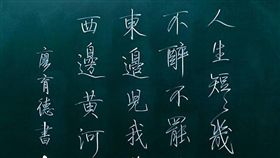 人生短短幾
不醉不罷
東邊兒我
西邊黃河
廖育德書